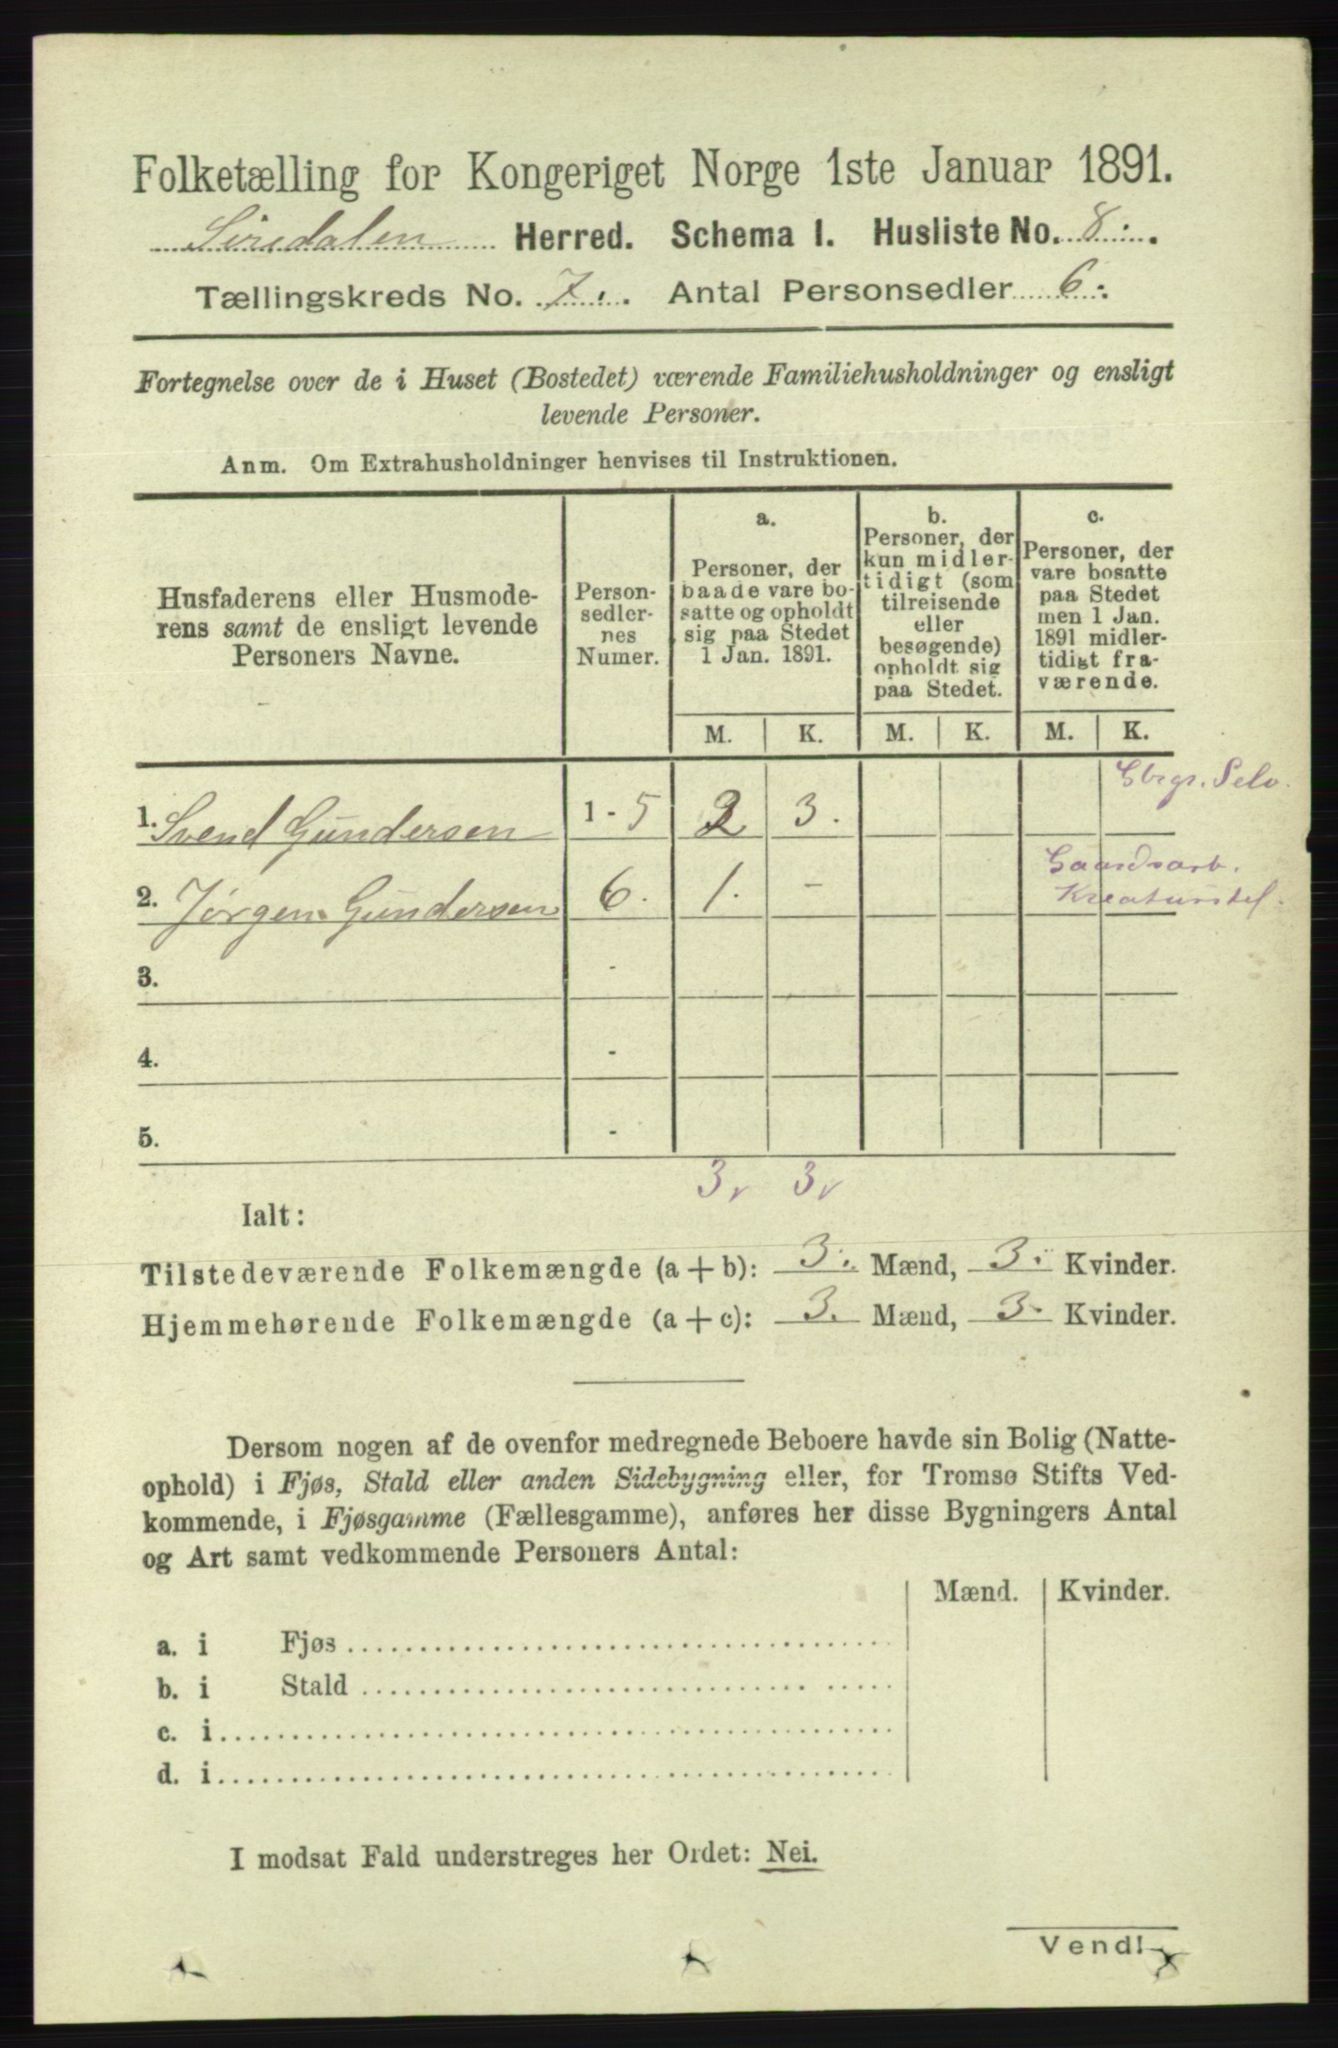 Folketælling for Kongeriget Norge 1ste Januar 1891.
Siredalen Herred. Schema I. Husliste No. 8.
Tællingskreds No. 7. Antal Personsedler 6.
Fortegnelse over de i Huset (Bostedet) værende Familiehusholdninger og ensligt
levende Personer.
Anm. Om Extrahusholdninger henvises til Instruktionen.
Husfaderens eller Husmode-
rens samt de ensligt levende
Personers Navne.
Person-
sedler-
nes
Numer.
a.
Personer, der
baade vare bo-
satte og opholdt
sig paa Stedet
1 Jan. 1891.
b.
Personer, der
kun midler-
tidigt (som
tilreisende
eller
besøgende)
opholdt sig
paa Stedet.
c.
Personer, der
vare bosatte
paa Stedet
men 1 Jan.
1891 midler-
tidigt fra-
værende.
M. K. M. K. M. K.
Gbrgr. Selv.
1. Svend Gundersen 1 - 5 2 3.
Gaardsarb.
Kreaturstel.
2. Jørgen Gundersen 6. 1. -
3. -
4. -
5. -
3 v 3 v
Ialt:
Tilstedeværende Folkemængde (a + b): 3. Mænd, 3. Kvinder.
Hjemmehørende Folkemængde (a + c): 3. Mænd, 3. Kvinder.
Dersom nogen af de ovenfor medregnede Beboere havde sin Bolig (Natte-
ophold) i Fjøs, Stald eller anden Sidebygning eller, for Tromsø Stifts Ved-
kommende, i Fjøsgamme (Fællesgamme), anføres her disse Bygningers Antal
og Art samt vedkommende Personers Antal:
Mænd. Kvinder.
a. i Fjøs
b. i Stald
c. i
d. i
I modsat Fald understreges her Ordet: Nei.
Vend!